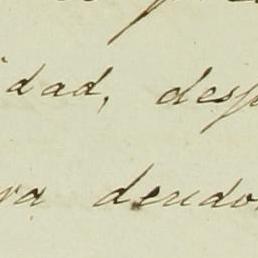 idad, desp
ra deudo